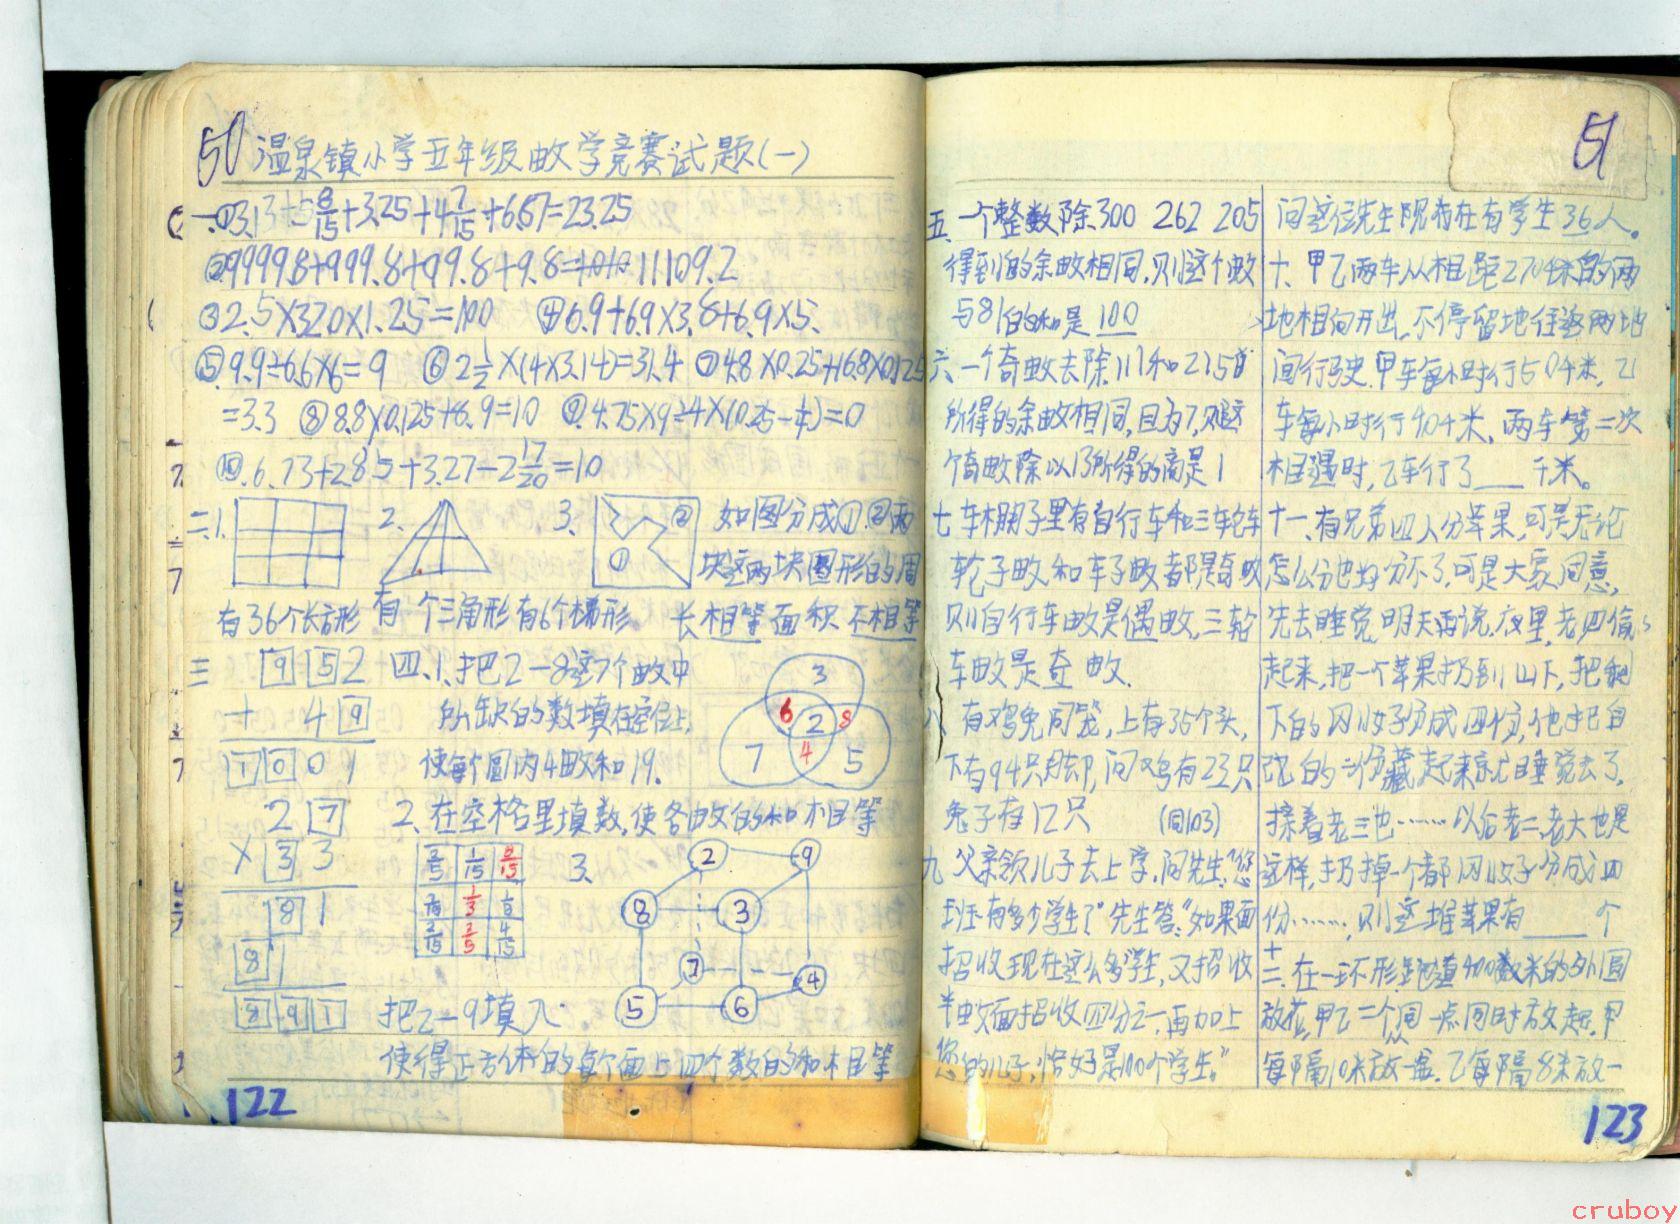 50 温泉镇小学五年级数学竞赛试题(一)
一、①3.13+5 8/15+3.25+4 7/15+6.87=23.25
②9999.8+999.8+99.8+9.8=11109.2
③2.5×320×1.25=100 ④6.9+6.9×3.8+6.9×5.
⑤9.9÷6.6×6=9 ⑥2 1/2×(4×3.14)=31.4 ⑦4.8×0.25+16.8×0.125
=3.3 ⑧8.8×0.125+8.9=10 ⑨4.75×9÷4×(0.25-1/4)=0
⑩6.73+2.85+3.27-2 17/20=10
二、1. 2. 3. ① ② 如图分成①.②两
块这两块图形的周
有36个长方形 有 个三角形有6个梯形。 长相等面积不相等
三 9 5 2
+ 4 9
1 0 0 1
2 7
× 3 3
8 1
8 1
8 9 1
四、1、把2—8这7个数中
所缺的数填在空位上,
使每个圆内4数和19.
3
6 2 8
7 4 5
2、在空格里填数,使各数的和相等
2/5 1/15 8/15
1/3
2/15 3/5 4/15
3、
2 9
8 3
7 4
5 6
把2—9填入
使得正方体的每个面上四个数的和相等
122
51
五、一个整数除300 262 205
得到的余数相同,则这个数
与81的和是100
六、一个奇数去除111和215
所得的余数相同,且为7,则这
个奇数除以13所得的商是1
七 车棚子里有自行车和三轮车
轮子数和车子数都是奇数
则自行车数是偶数,三轮
车数是奇数.
八 有鸡兔同笼,上有35个头,
下有94只脚,问鸡有23只
兔子有12只 (同103)
九 父亲领儿子去上学,问先生:“您
班有多少学生了”先生答:“如果再
招收现在这么多学生,又招收
半数再招收四分之一,再加上
您的儿子,恰好是100个学生。”
问这位先生现在有学生36人。
十、甲乙两车从相距270千米的两
地相向开出,不停留地往返两地
间行驶.甲车每小时行50千米,乙
车每小时行40千米,两车第二次
相遇时,乙车行了 千米。
十一、有兄弟四人分苹果,可是无论
怎么分也分不了,可是大家同意,
先去睡觉明天再说.夜里,老四偷
起来,把一个苹果扔到山下,把剩
下的刚好分成四份,他把自
己的一份藏起来就睡觉去了.
接着老三也……以后老二、老大也是
这样,扔掉一个都刚好分成四
份……,则这堆苹果有 个
十二、在一环形跑道400米的外圆
放花,甲乙二人同一点同时放起.甲
每隔10米放一盆.乙每隔8米放一
123
cruboy